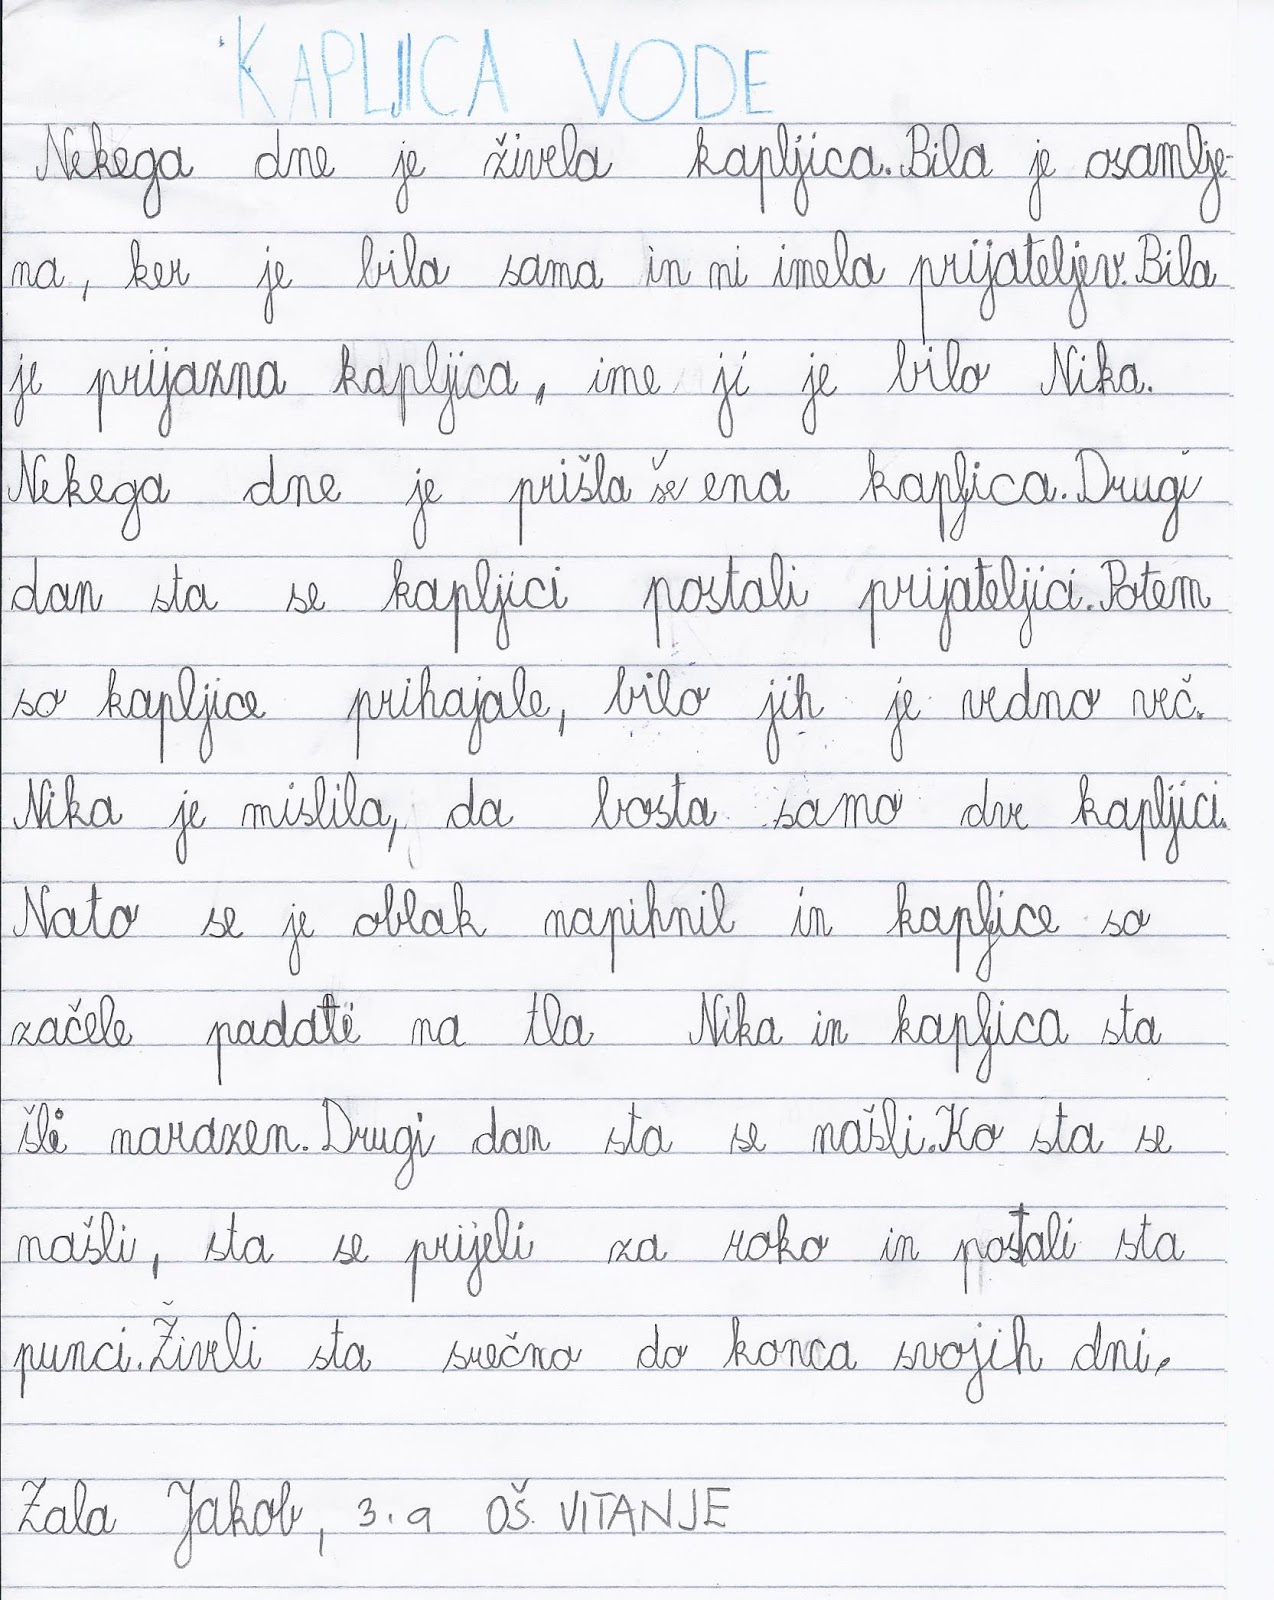 KAPLJICA VODE
Nekega dne je živela kapljica. Bila je osamlje-
na, ker je bila sama in ni imela prijateljev. Bila
je prijazna kapljica, ime ji je bilo Nika.
Nekega dne je prišla še ena kapljica. Drugi
dan sta se kapljici postali prijateljici. Potem
so kapljice prihajale, bilo jih je vedno več.
Nika je mislila, da bosta samo dve kapljici.
Nato se je oblak napihnil in kapljice so
začele padati na tla Nika in kapljica sta
šli narazen. Drugi dan sta se našli. Ko sta se
našli, sta se prijeli za roko in postali sta
punci. Živeli sta srečno do konca svojih dni.
Zala Jakob, 3. a OŠ VITANJE